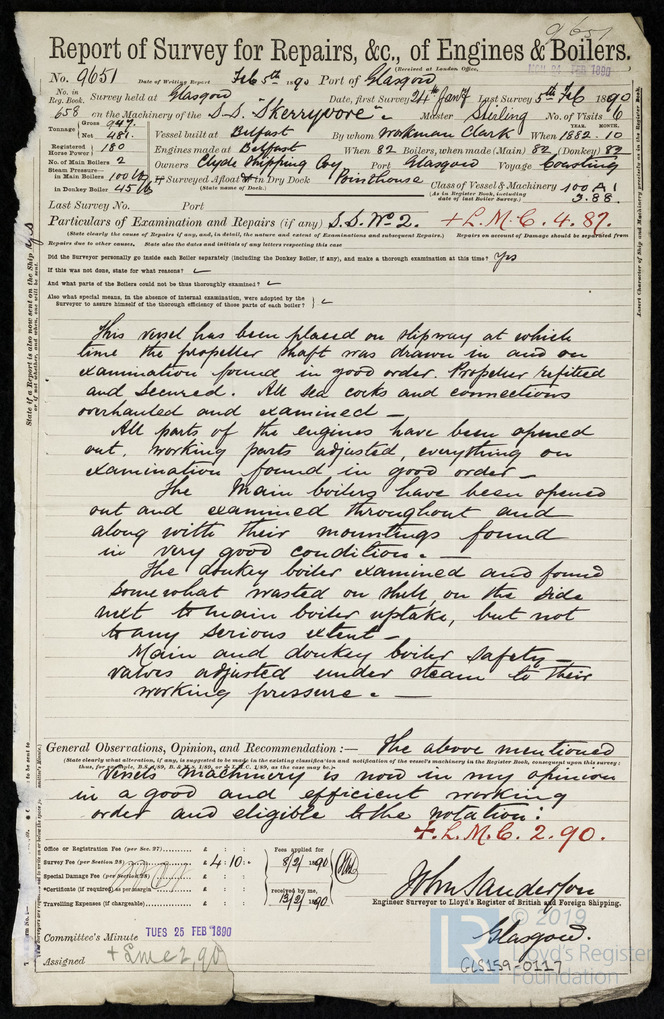 9651
Report of Survey for Repairs, &c., of Engines & Boilers.
(Received at London Office,
No. 9651 Date of Writing Report Feb 5th 1890 Port of Glasgow
No. in Reg. Book. Survey held at Glasgow Date, first Survey 24th Jany Last Survey 5th Feb 1890
658 on the Machinery of the S.S. "Skerryvore". Master Stirling No. of Visits 6
Tonnage Gross 942 Net 481 Vessel built at Belfast By whom Workman Clark When 1882.10
YEAR. MONTH.
Registered Horse Power 180 Engines made at Belfast When 82 Boilers, when made (Main) 82 (Donkey) 82
No. of Main Boilers 2 Owners Clyde Shipping Coy Port Glasgow Voyage Coasting
Steam Pressure— in Main Boilers 100 lb If Surveyed Afloat or in Dry Dock Pointhouse
(State name of Dock.)
in Donkey Boiler 45 lb Class of Vessel & Machinery 100 A1
(As in Register Book, including date of last Boiler Survey.) 3.88.
Last Survey No. Port
Particulars of Examination and Repairs (if any) S.S. No 2. + L.M.C. 4.87.
(State clearly the cause of Repairs if any, and, in detail, the nature and extent of Examinations and subsequent Repairs.) Repairs on account of Damage should be separated from
Repairs due to other causes. State also the dates and initials of any letters respecting this case
Did the Surveyor personally go inside each Boiler separately (including the Donkey Boiler, if any), and make a thorough examination at this time? Yes
If this was not done, state for what reasons?
And what parts of the Boilers could not be thus thoroughly examined?
Also what special means, in the absence of internal examination, were adopted by the
Surveyor to assure himself of the thorough efficiency of those parts of each boiler?
This vessel has been placed on slipway at which
time the propeller shaft was drawn in and on
examination found in good order. Propeller refitted
and secured. All sea cocks and connections
overhauled and examined —
All parts of the engines have been opened
out, working parts adjusted, everything on
examination found in good order —
The Main boilers have been opened
out and examined throughout and
along with their mountings found
in very good condition. —
The donkey boiler examined and found
somewhat wasted on shell, on the side
next to main boiler uptake, but not
to any serious extent —
Main and donkey boiler safety
valves adjusted under steam to their
working pressure. —
General Observations, Opinion, and Recommendation :— The above mentioned
(State clearly what alteration, if any, is suggested to be made in the existing classification and notification of the vessel's machinery in the Register Book, consequent upon this survey:
thus, for example, B.S. 1/89, B. & M.S. 1/89, or + L.M.C. 1/89, as the case may be.)
vessels machinery is now in my opinion
in a good and efficient working
order and eligible to the notation:
+ L.M.C. 2.90.
Office or Registration Fee (per Sec. 27) £ : :
Survey Fee (per Section 28) £ 4 : 10 : -
Special Damage Fee (per Section 28) £ : :
*Certificate (if required) as per margin £ : :
Travelling Expenses (if chargeable) £ : :
Fees applied for
8/2/1890
received by me,
13/2/1890
John Sanderson
Engineer Surveyor to Lloyd's Register of British and Foreign Shipping.
Glasgow.
Committee's Minute TUES 25 FEB 1890
Assigned + Lmc 2,90
GLS159-0117
LR
© 2019
Lloyd's Register
Foundation